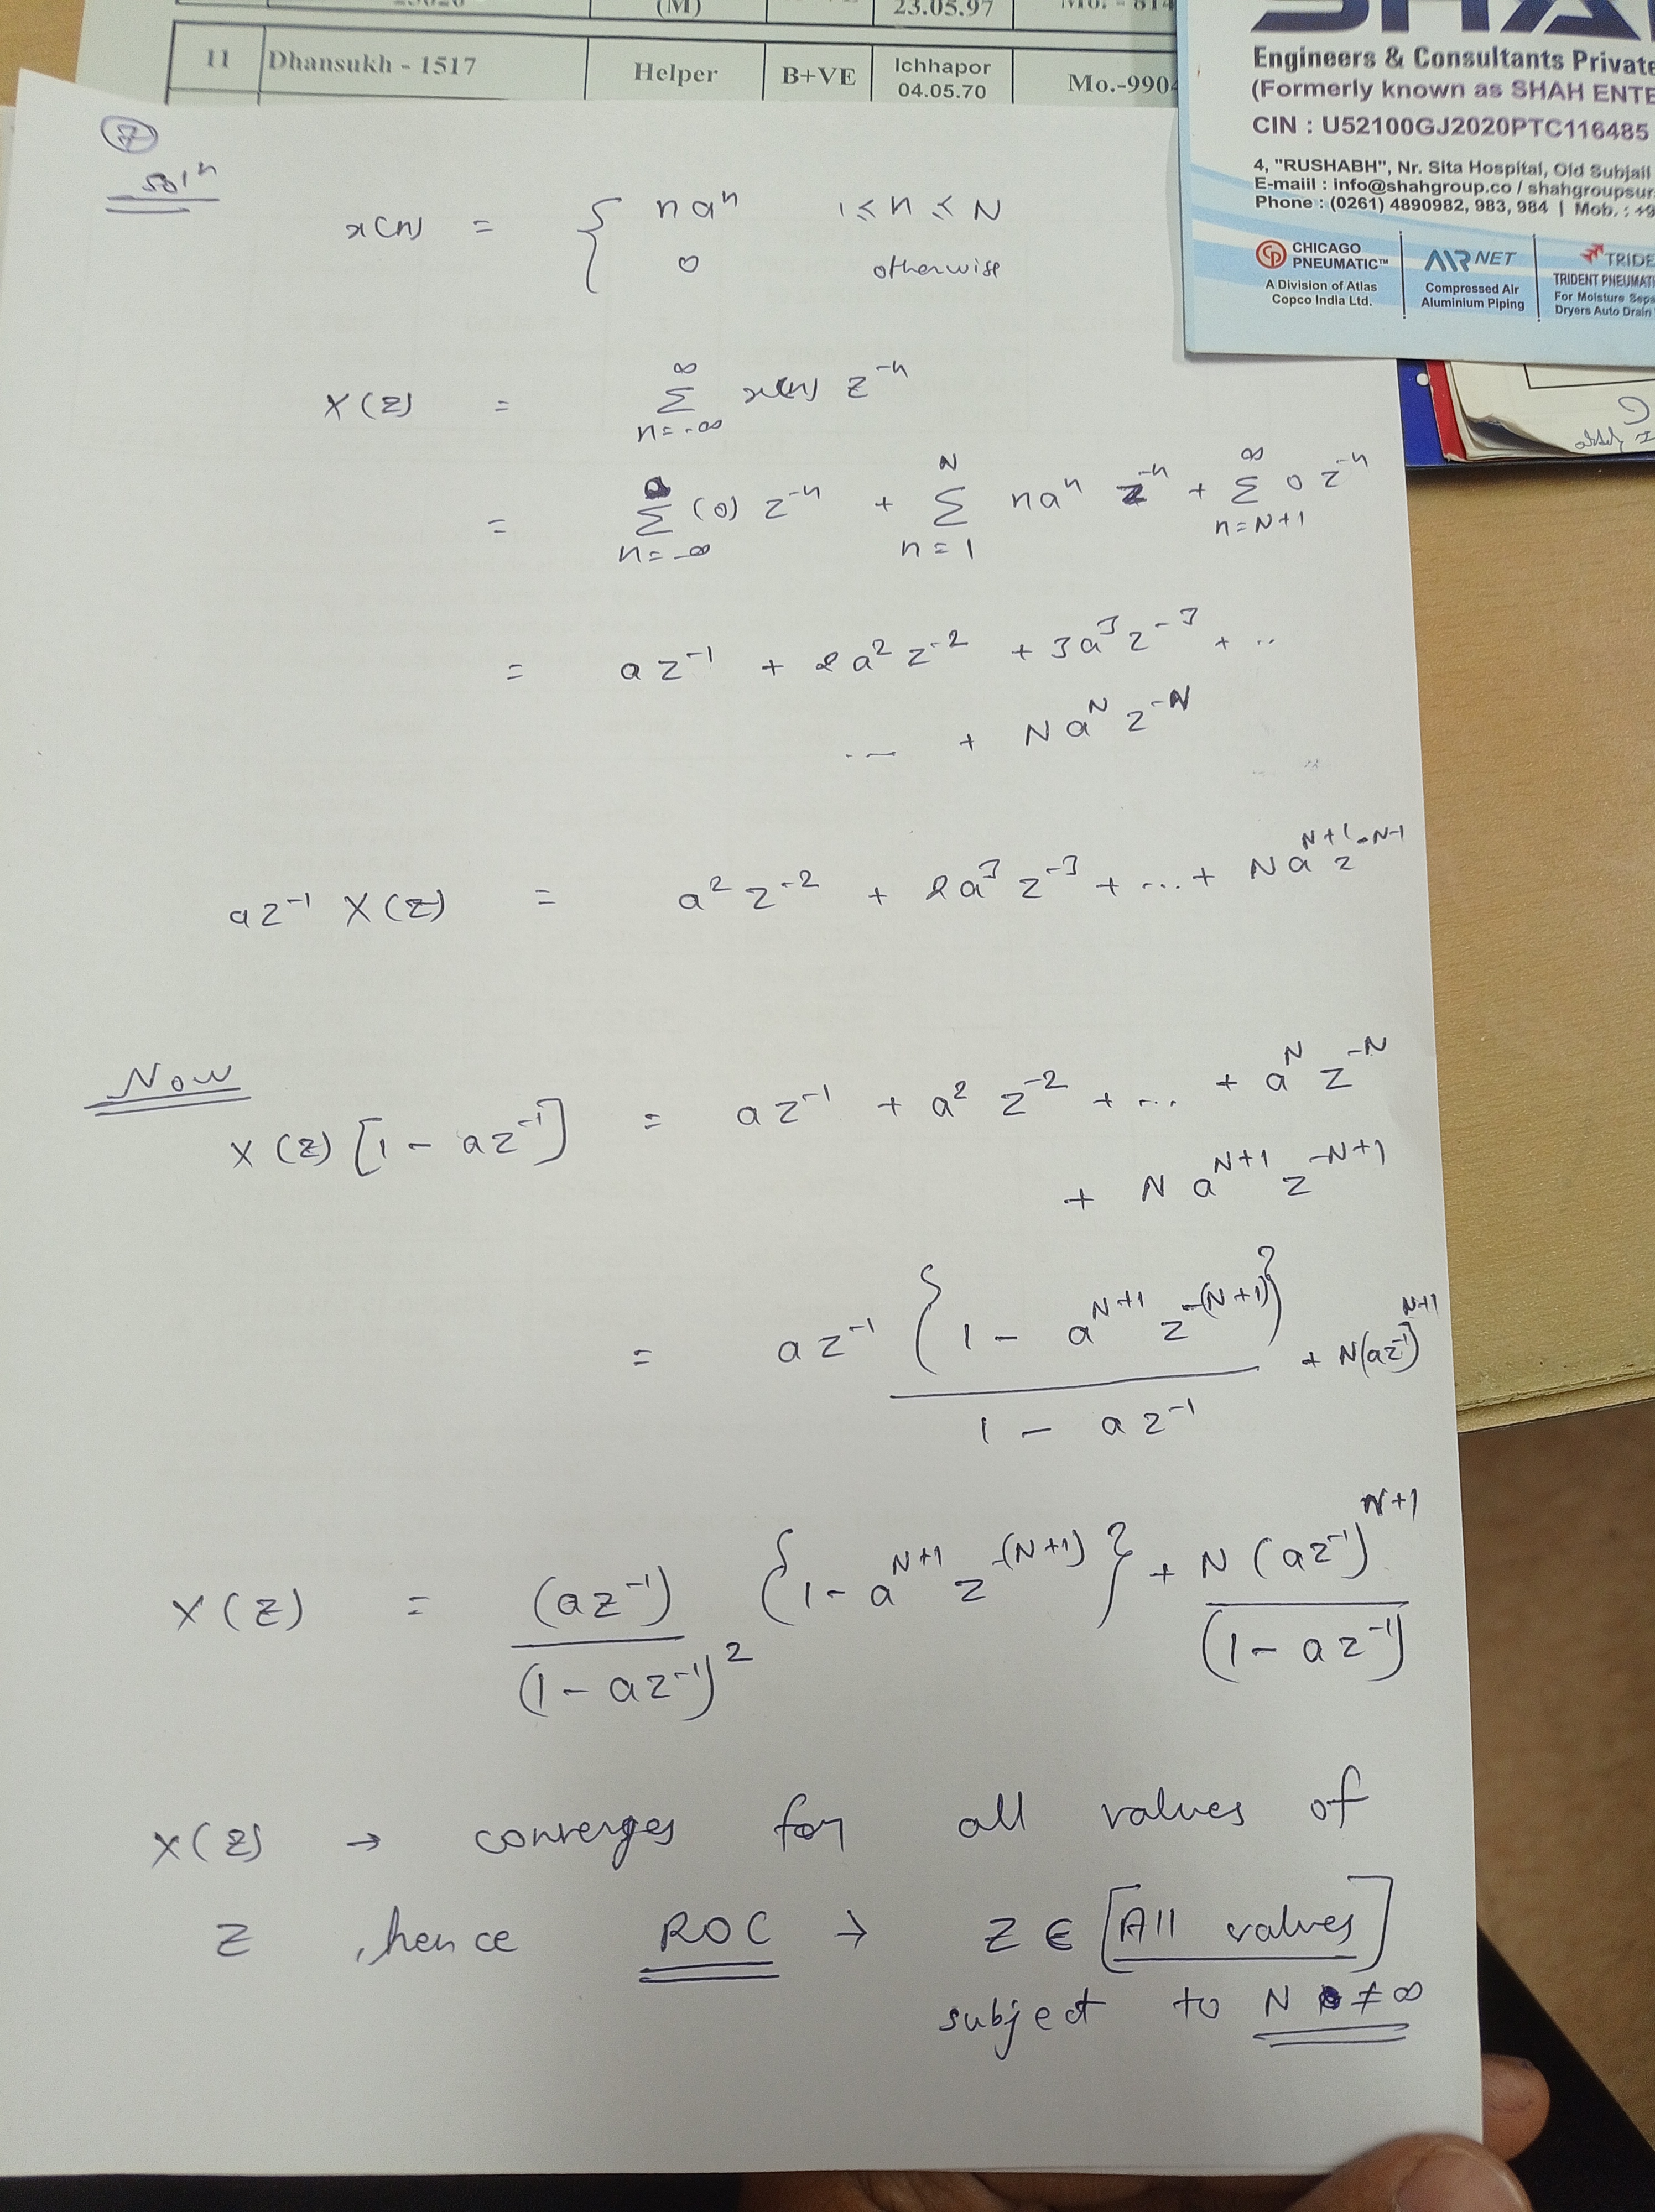 (M)
23.05.97
11 Dhansukh - 1517 Helper B+VE Ichhapor 04.05.70 Mo.-9904
Engineers & Consultants Private
(Formerly known as SHAH ENTE
CIN : U52100GJ2020PTC116485
4, "RUSHABH", Nr. Sita Hospital, Old Subjail
E-maiil : info@shahgroup.co / shahgroupsur
Phone : (0261) 4890982, 983, 984 | Mob. : +9
CHICAGO PNEUMATIC™
A Division of Atlas
Copco India Ltd.
AIRNET
Compressed Air
Aluminium Piping
TRIDE
TRIDENT PNEUMATI
For Moisture Sepa
Dryers Auto Drain
7
solⁿ
x(n) = { n aⁿ 1 ≤ n ≤ N
0 otherwise
X(z) = Σ_{n=-∞}^{∞} x(n) z^{-n}
= Σ_{n=-∞}^{0} (0) z^{-n} + Σ_{n=1}^{N} n aⁿ z^{-n} + Σ_{n=N+1}^{∞} 0 z^{-n}
= a z^{-1} + 2 a² z^{-2} + 3 a³ z^{-3} + ..
... + N a^N z^{-N}
a z^{-1} X(z) = a² z^{-2} + 2 a³ z^{-3} + ... + N a^{N+1} z^{-N-1}
Now
X(z) [1 - a z^{-1}] = a z^{-1} + a² z^{-2} + ... + a^N z^{-N}
+ N a^{N+1} z^{-N+1}
= a z^{-1} {1 - a^{N+1} z^{-(N+1)}} / (1 - a z^{-1}) + N(a z^{-1})^{N+1}
X(z) = (a z^{-1}) / (1 - a z^{-1})² {1 - a^{N+1} z^{-(N+1)}} + N (a z^{-1})^{N+1} / (1 - a z^{-1})
X(z) → converges for all values of
z , hence ROC → z ∈ [All values]
subject to N ≠ ∞